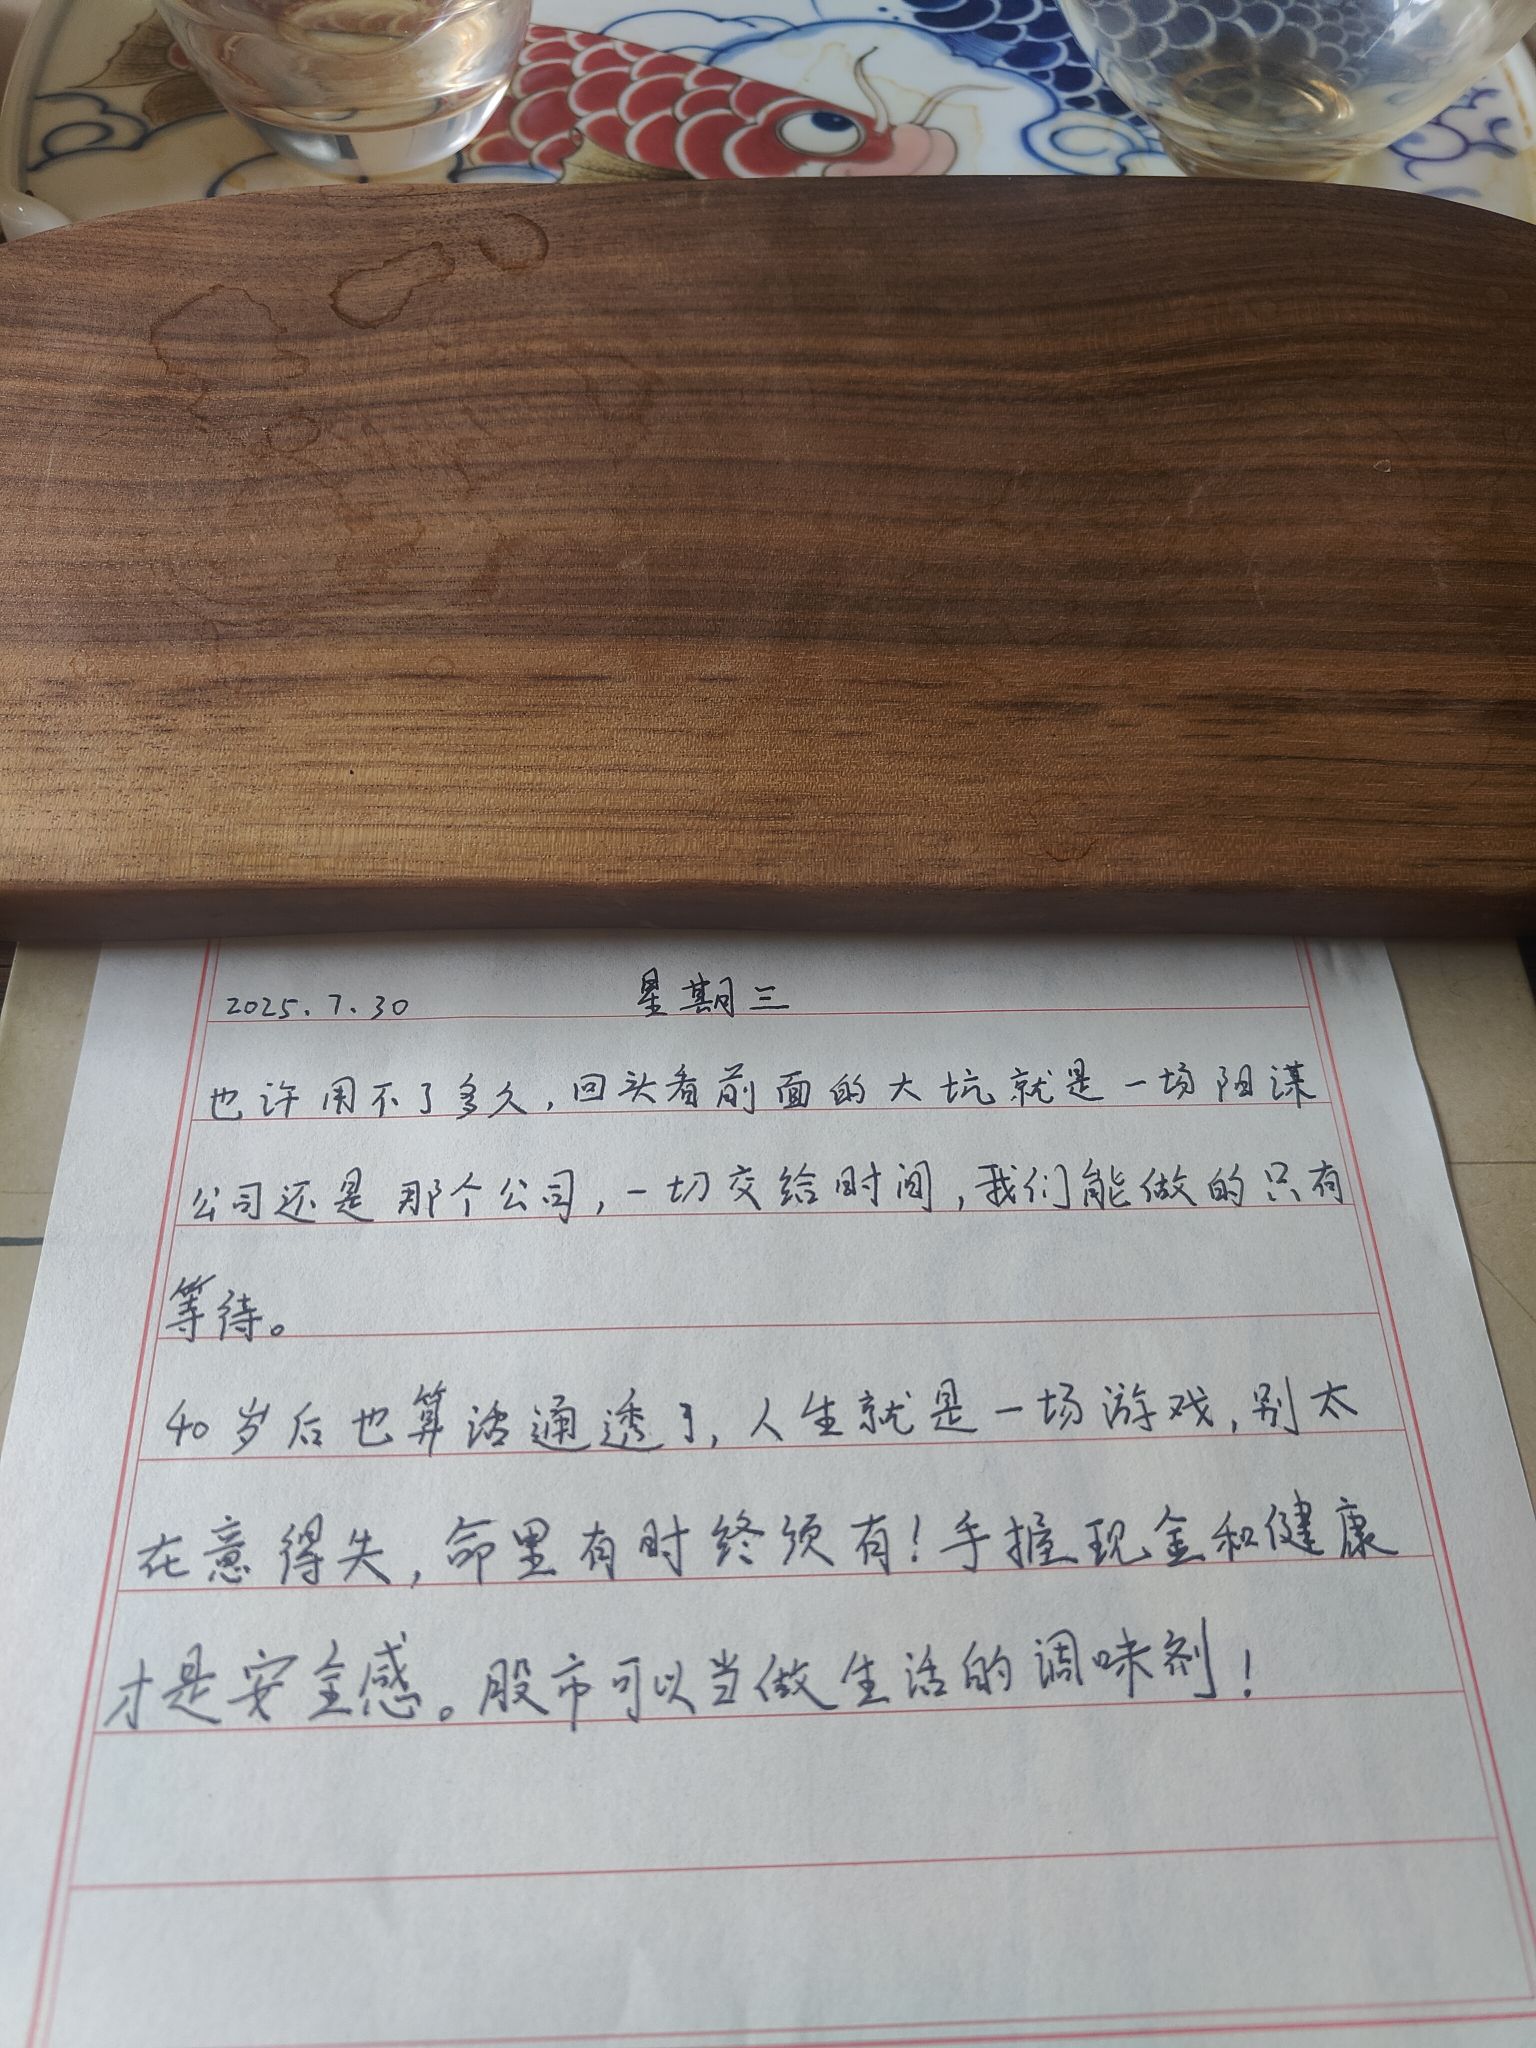 2025.7.30 星期三
也许用不了多久,回头看前面的大坑就是一场阳谋
公司还是那个公司,一切交给时间,我们能做的只有
等待。
40岁后也算活通透了,人生就是一场游戏,别太
在意得失,命里有时终须有!手握现金和健康
才是安全感。股市可以当做生活的调味剂!